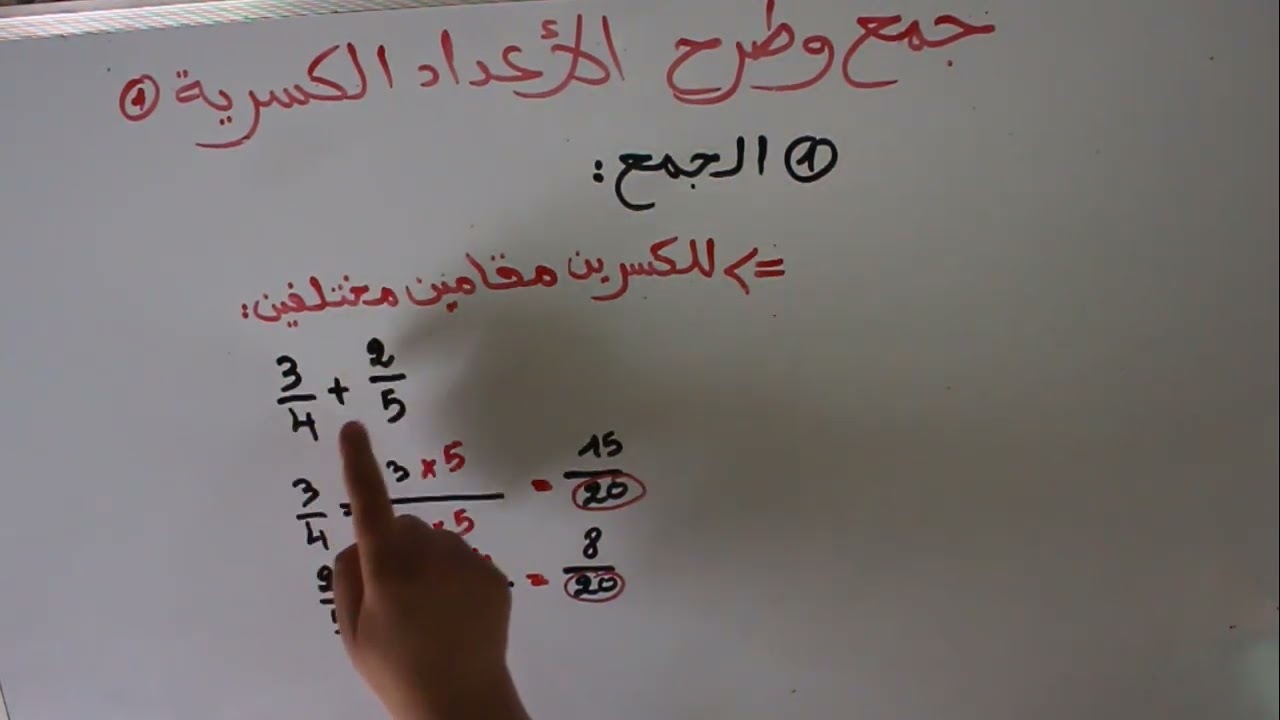 جمع وطرح الأعداد الكسرية ①
① الجمع:
=> للكسرين مقامين مختلفين:
3/4 + 2/5
3/4 = 3 × 5 / × 5 = 15/20
2/ = 8/20